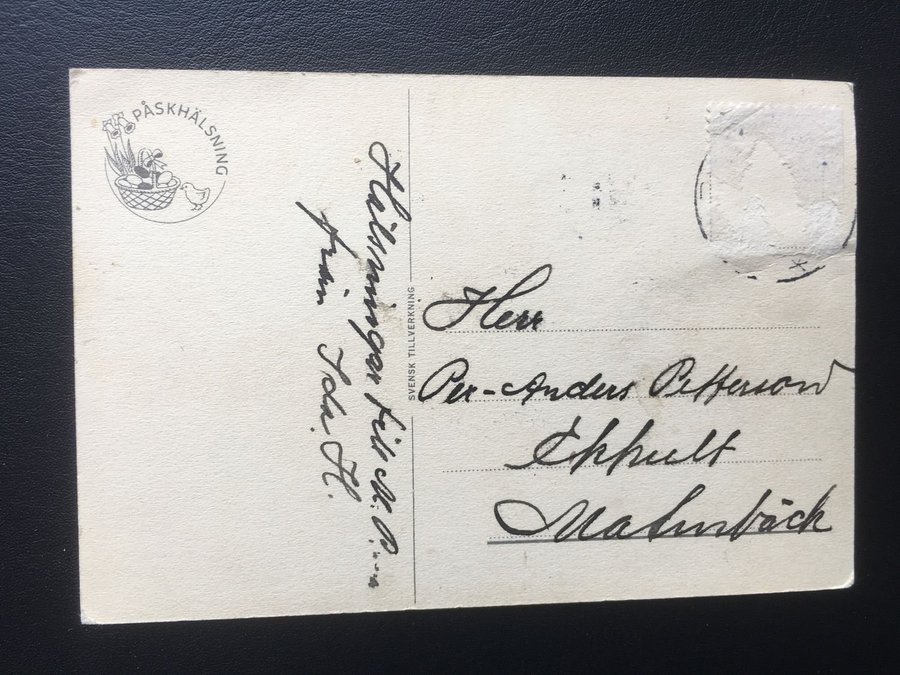 PÅSKHÄLSNING
Hälsningar till
från Ida. H.
SVENSK TILLVERKNING
Herr
Per-Anders Petterson
Ekhult
Malmbäck